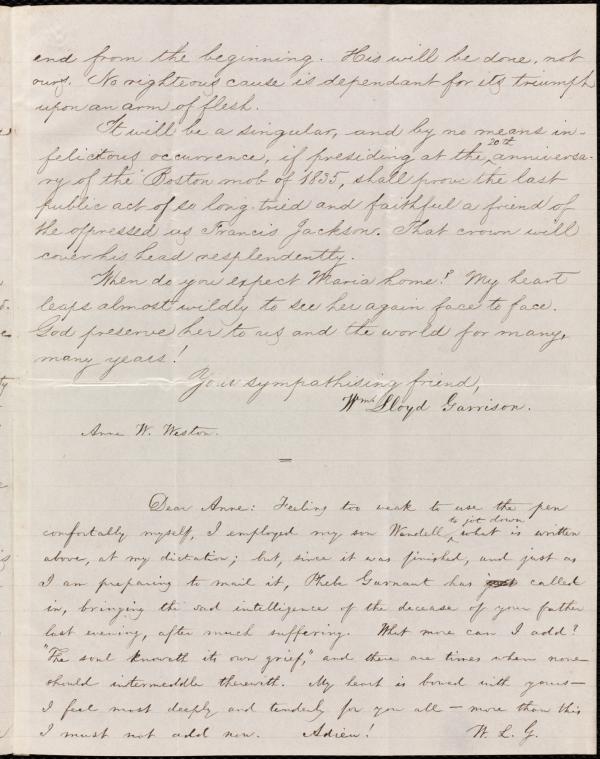 end from the beginning. His will be done, not
ours. No righteous cause is dependant for its triumph
upon an arm of flesh.
It will be a singular, and by no means in-
felicitous occurrence, if presiding at the 20th anniversa-
ry of the Boston mob of 1835, shall prove the last
public act of so long-tried and faithful a friend of
the oppressed as Francis Jackson. That crown will
cover his head resplendently.
When do you expect Maria home? My heart
leaps almost wildly to see her again face to face.
God preserve her to us and the world for many,
many years!
Your sympathising friend,
Wm. Lloyd Garrison.
Anne W. Weston.
Dear Anne: Feeling too weak to use the pen
comfortably myself, I employed my son Wendell to jot down what is written
above, at my dictation; but, since it was finished, and just as
I am preparing to mail it, Phebe Garnaut has just called
in, bringing the sad intelligence of the decease of your father
last evening, after much suffering. What more can I add?
"The soul knoweth its own grief," and there are times when none
should intermeddle therewith. My heart is bowed with yours—
I feel most deeply and tenderly for you all — more than this
I must not add now. Adieu! W. L. G.